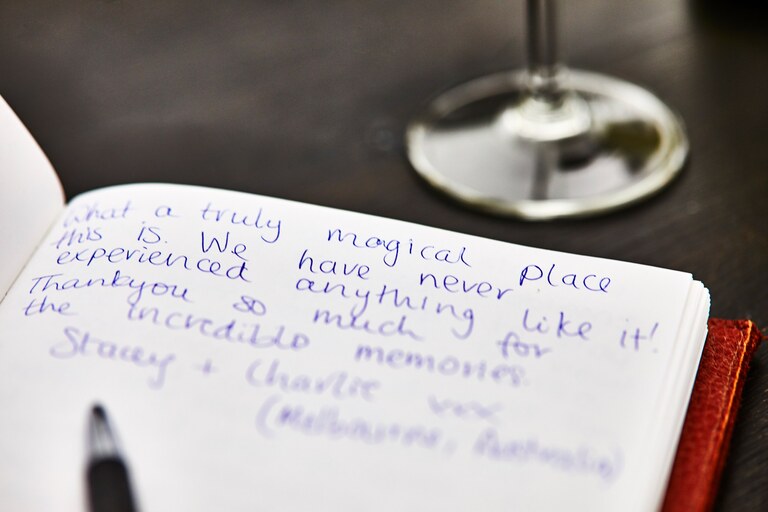 What a truly magical place
this is. We have never
experienced anything like it!
Thankyou so much for
the incredible memories.
Stacey + Charlie xxx
(Melbourne, Australia)